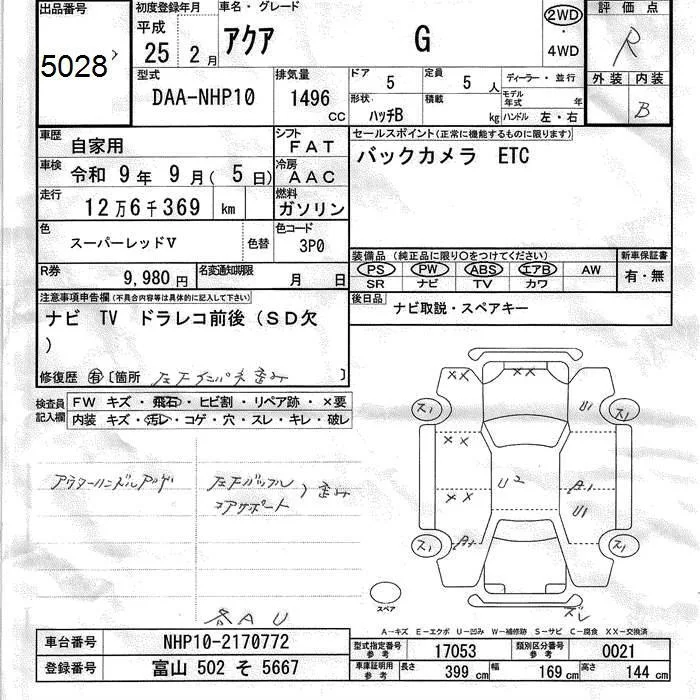 出品番号
5028
初度登録年月
平成
25 2月
車名・グレード
アクア G
2WD
・
4WD
評価点
R
外装 内装
B
型式
DAA-NHP10
排気量
1496 CC
ドア 5
定員 5 人
形状 ハッチB
積載 kg
ディーラー・並行
モデル年式 年
ハンドル 左・右
車歴 自家用
シフト FAT
車検 令和 9年 9月(5日)
冷房 AAC
走行 12万6千369 km
燃料 ガソリン
色 スーパーレッドV 色替
色コード 3P0
R券 9,980円
名変通知期限 月 日
セールスポイント(正常に機能するものに限ります)
バックカメラ ETC
装備品 (純正品に限り○をつけてください)
PS PW ABS エアB AW
SR ナビ TV カワ
新車保証書
有・無
後日品 ナビ取説・スペアキー
注意事項申告欄(不具合内容等は具体的に記入して下さい)
ナビ TV ドラレコ前後(SD欠
)
修復歴 有 [箇所 左下インパネ歪み ]
検査員記入欄
FW キズ・飛石・ヒビ割・リペア跡・×要
内装 キズ・汚レ・コゲ・穴・スレ・キレ・破レ
アウターハンドル
左下バッフル
コアサポート
歪み
各AU
XX XX
ス1 U1 ス1
XX
U2 A1
XX U1
ス1 A1 ス1
スペア
ズレ
A-キズ E-エクボ U-凹み W-補修跡 S-サビ C-腐食 XX-交換済
車台番号 NHP10-2170772
登録番号 富山 502 そ 5667
型式指定番号 参考 17053
類別区分番号 参考 0021
車庫証明用 参考 長さ 399 cm 幅 169 cm 高さ 144 cm